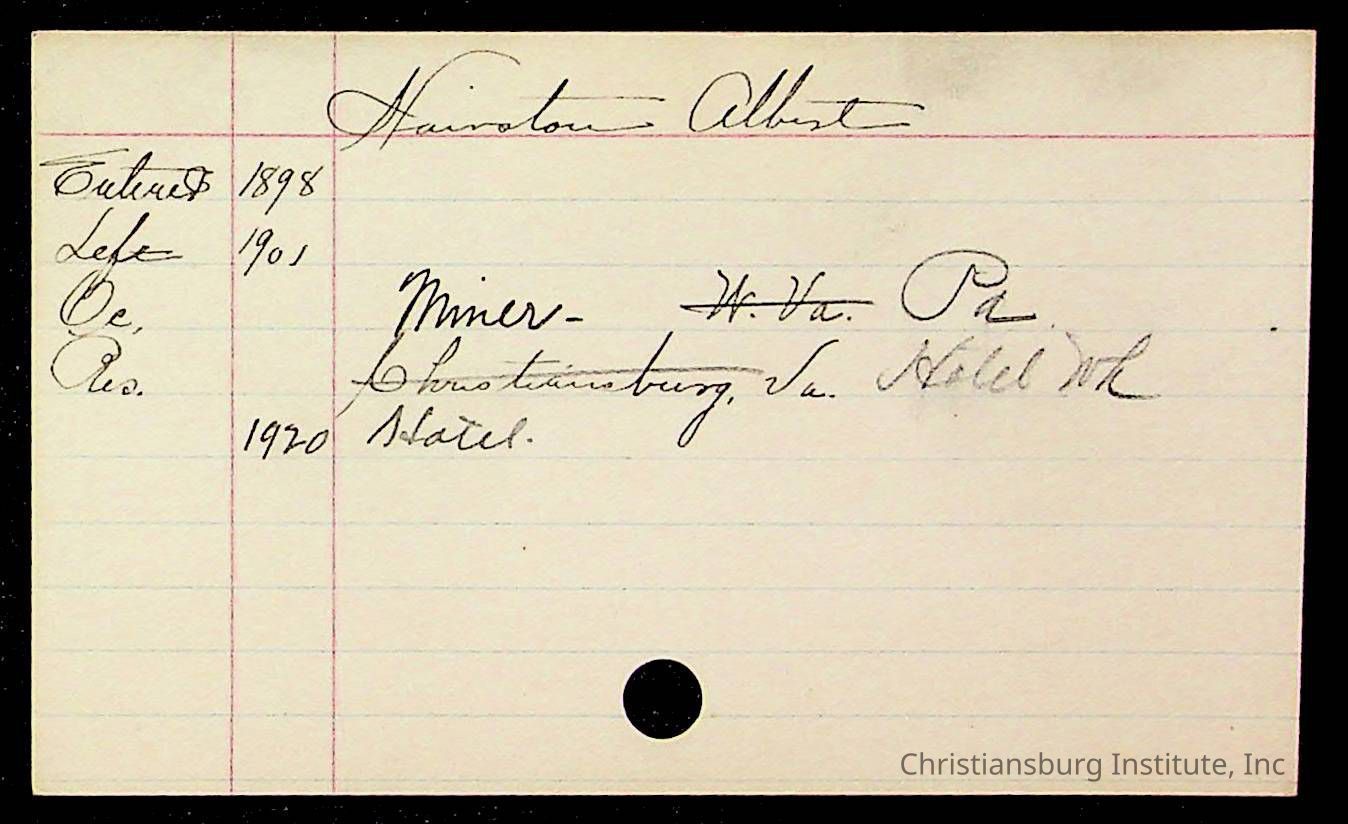 Hairston Albert
Entered 1898
Left 1901
Oc. Miner - W. Va. Pa.
Res. Christiansburg, Va. Hotel Wk
1920 Hotel.
Christiansburg Institute, Inc